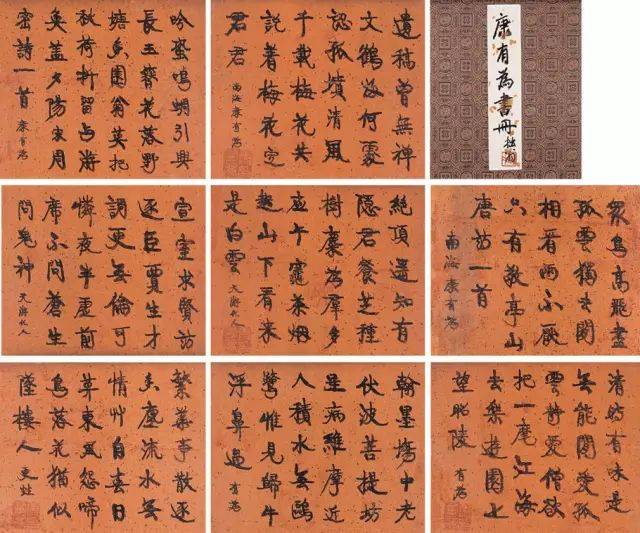 康有為書冊
遺稿曾無禪
文鶴歸何處
認孤墳清風
千載梅花共
說着梅花定
君君
南海康有為
吟蛩鳴蜩引興
長玉簪花落野
塘香園翁莫把
秋荷折留與游
魚蓋夕陽宋周
密詩一首 康有為
眾鳥高飛盡
孤雲獨去閑
相看兩不厭
只有敬亭山
唐詩一首
南海康有為
絕頂遙知有
隱君餐芝種
樹麋為群多
應午竈茶烟
起山下看來
是白雲 天游化人
宣室求賢訪
逐臣賈生才
調更無倫可
憐夜半虛前
席不問蒼生
問鬼神 天游化人
清時有味是
無能閑愛孤
雲靜愛僧欲
把一麾江海
去樂遊園上
望昭陵 有為
翰墨場中老
伏波菩提坊
里病維摩近
人積水無鷗
鷺惟見歸牛
浮鼻過 有為
繁華事散逐
香塵流水無
情草自春日
暮東風怨啼
鳥落花猶似
墜樓人 更甡